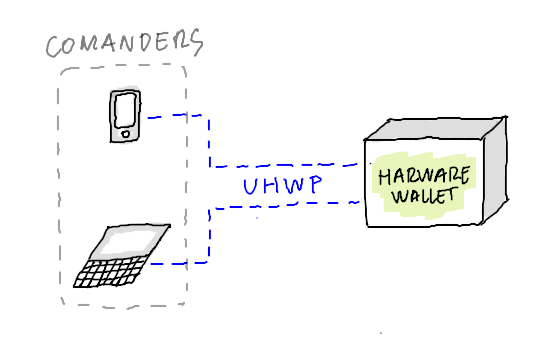 COMANDERS
UHWP
HARWARE
WALLET